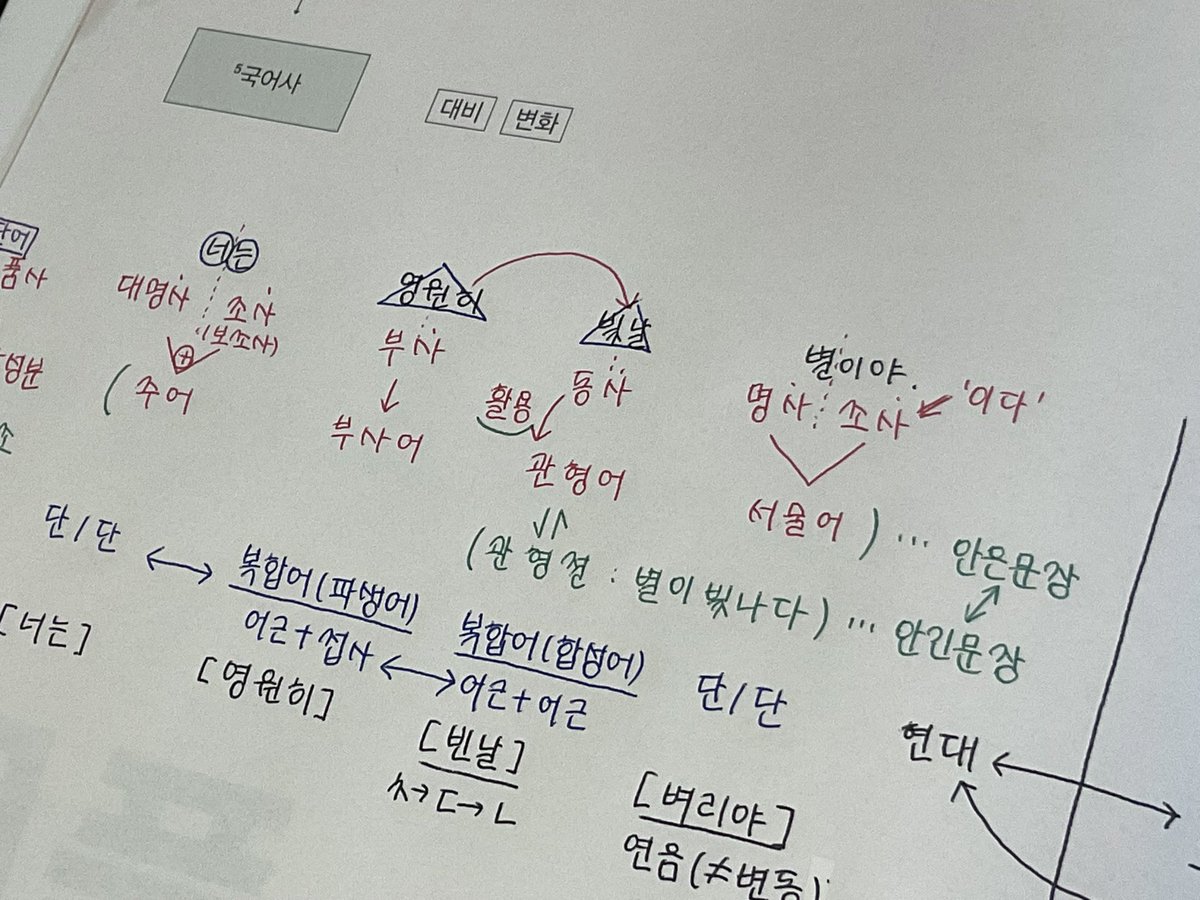 ⁵국어사
대비 변화
단어
너는 영원히 빛날 별이야.
품사 대명사 조사 부사 동사 명사 조사 '이다'
(보조사)
성분 ( 주어 부사어 활용 관형어 서술어 ) … 안은문장
(관형절 : 별이 빛나다) … 안긴문장
단/단 복합어(파생어) 복합어(합성어) 단/단
어근+접사 어근+어근
[너는] [영원히] [빈날] [벼리야]
ㅊ→ㄷ→ㄴ 연음(≠변동)
현대